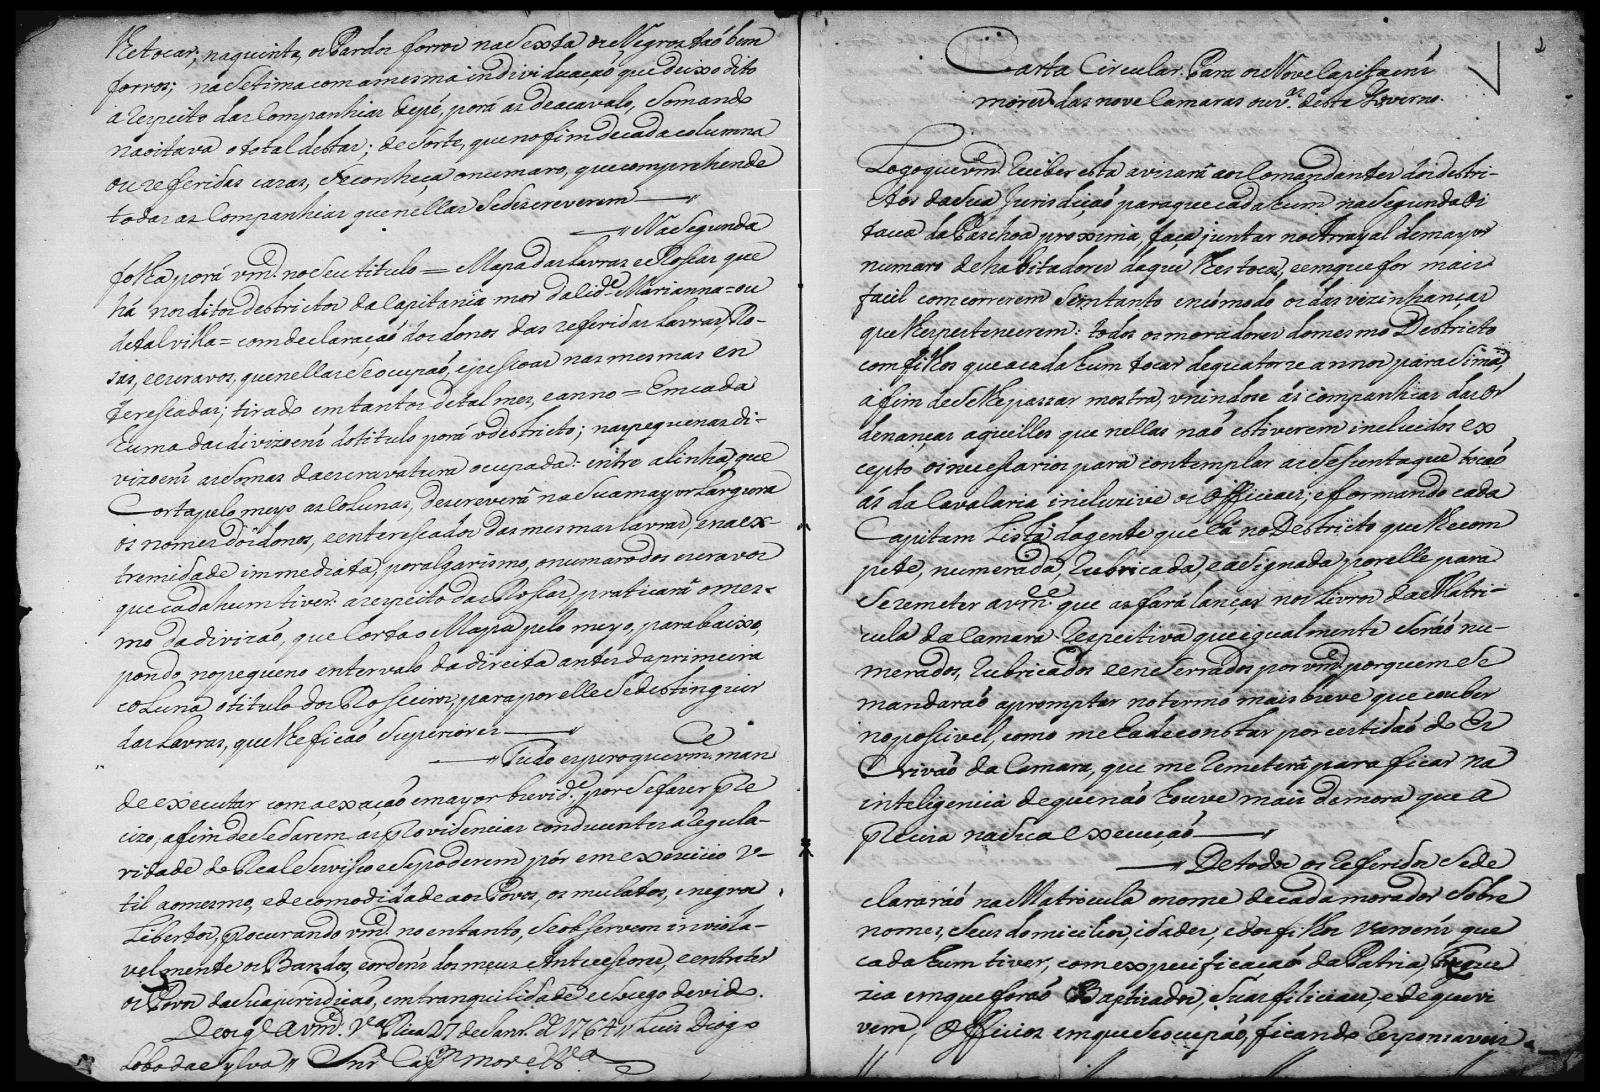 lhe tocar; na quinta, os Pardos forros na sexta os Negros taõ bem
forros; na setima com a mesma individuaçaõ que deixo dito
a respeito das Companhias de pé, porá as de acavalo, somando
na oitava o total destas; de sorte, que no fim de cada columna
ou referidas cazas, se conheça o numaro, que comprehende
todas as Companhias que nellas se descreverem
Na segunda
folha porá vm.ce no seu titulo = Mapa das Lavras e Rossas que
há nos ditos destrictos da Capitania mor da Cid.e Marianna = ou
de tal villa = com declaraçaõ dos donos das referidas Lavras, Ro-
sas, e escravos, que nellas se ocupaõ, e pessoas nas mesmas en
teressadas; tirado em tantos de tal mes, e anno = Em cada
huma das divizoens do titulo porá o destricto; nas pequenas di-
vizoens as somas da escravatura ocupada: intre a linha, que
Corta pelo meyo as Colunas, descreverá na sua mayor Largura
os nomes dos donos, e enteressados das mesmas Lavras, e na ex-
tremidade immediata, por algarismo, o numaro dos escravos
que cada hum tiver: a respeito das Rossas, praticará o mes-
mo da divizaõ, que Corta o Mapa pelo meyo, para baixo,
pondo no pequeno entervalo da direita antes da primeira
coluna o titulo dos Rosseiros, para por elle se destinguir
das Lavras, que lhe ficaõ superiores
Tudo espero que vm.ce man
de executar com a exaçaõ e mayor brevid.e por se fazer pre
cizo, afim de se darem ás providencias conducentes a regula-
ridade do Real Serviso e se poderem pôr em exercicio v-
til ao mesmo, e de comodidade aos Povos, os mulatos, e negros
Libertos, procurando vm.ce no entanto, se observem inviola-
velmente os Bandos, e ordens dos meus Antecessores, e entreter
os Povos da sua jurisdiçaõ, em tranquilidade e socego devido.
Deos g.e a vm.ce V.a Rica 27 de Janr.o de 1764 // Luis Diogo
Lobo da Sylva // Snr Cap.m mor
2
Carta Circular: Para os Nove Capitaens
mores das nove Camaras deste Governo.
Logo que vm.ce receber esta avizará aos Comandantes dos destri-
tos da sua Jurisdiçaõ para que cada hum na segunda oi
tava da Paschoa proxima, faça juntar no Arrayal de mayor
numaro de habitadores daquê lhes toca, e em que for mais
facil comcorrerem sem tanto encómodo os das vezinhanças
que lhes pertencerem: todos os moradores do mesmo Destricto
com filhos que a cada hum tocar de quatorze annos para sima,
áfim de se lhe passar mostra, vnindose ás companhias das Or
denanças aquelles que nellas naõ estiverem incluidos ex
cepto os necessarios para contemplar as sesenta que tocaõ
ás da Cavalaria incluzive os Officiaes; e formando cada
Capitam Lista da gente que há no Destricto que lhe com
pete, numerada, rubricada, e asignada por elle para
se remeter a vm.ce que as fará lançar nos Livros da Matri-
cula da Camara respectiva que igualmente seraõ nu-
merados, rubricados e enserrados por vm.ce por quem se
mandaraõ apromptar no termo mais breve que couber
no possivel, como me há de constar por certidaõ do Es
crivaõ da Camara, que me remeterá para ficar na
inteligencia de que naõ houve mais demora que a
preciza na sua execuçaõ
De todos os referidos se de
clararáõ na Matricula o nome de cada morador sobre
nomes, seus domicilios, idades, e dos filhos varoens que
cada hum tiver, com expecificaçaõ da Patria, Fregue
zia em que foraõ Baptizados, suas filiciaes, e de que vi
vem, Officios em que se ocupaõ, ficando responsaveis